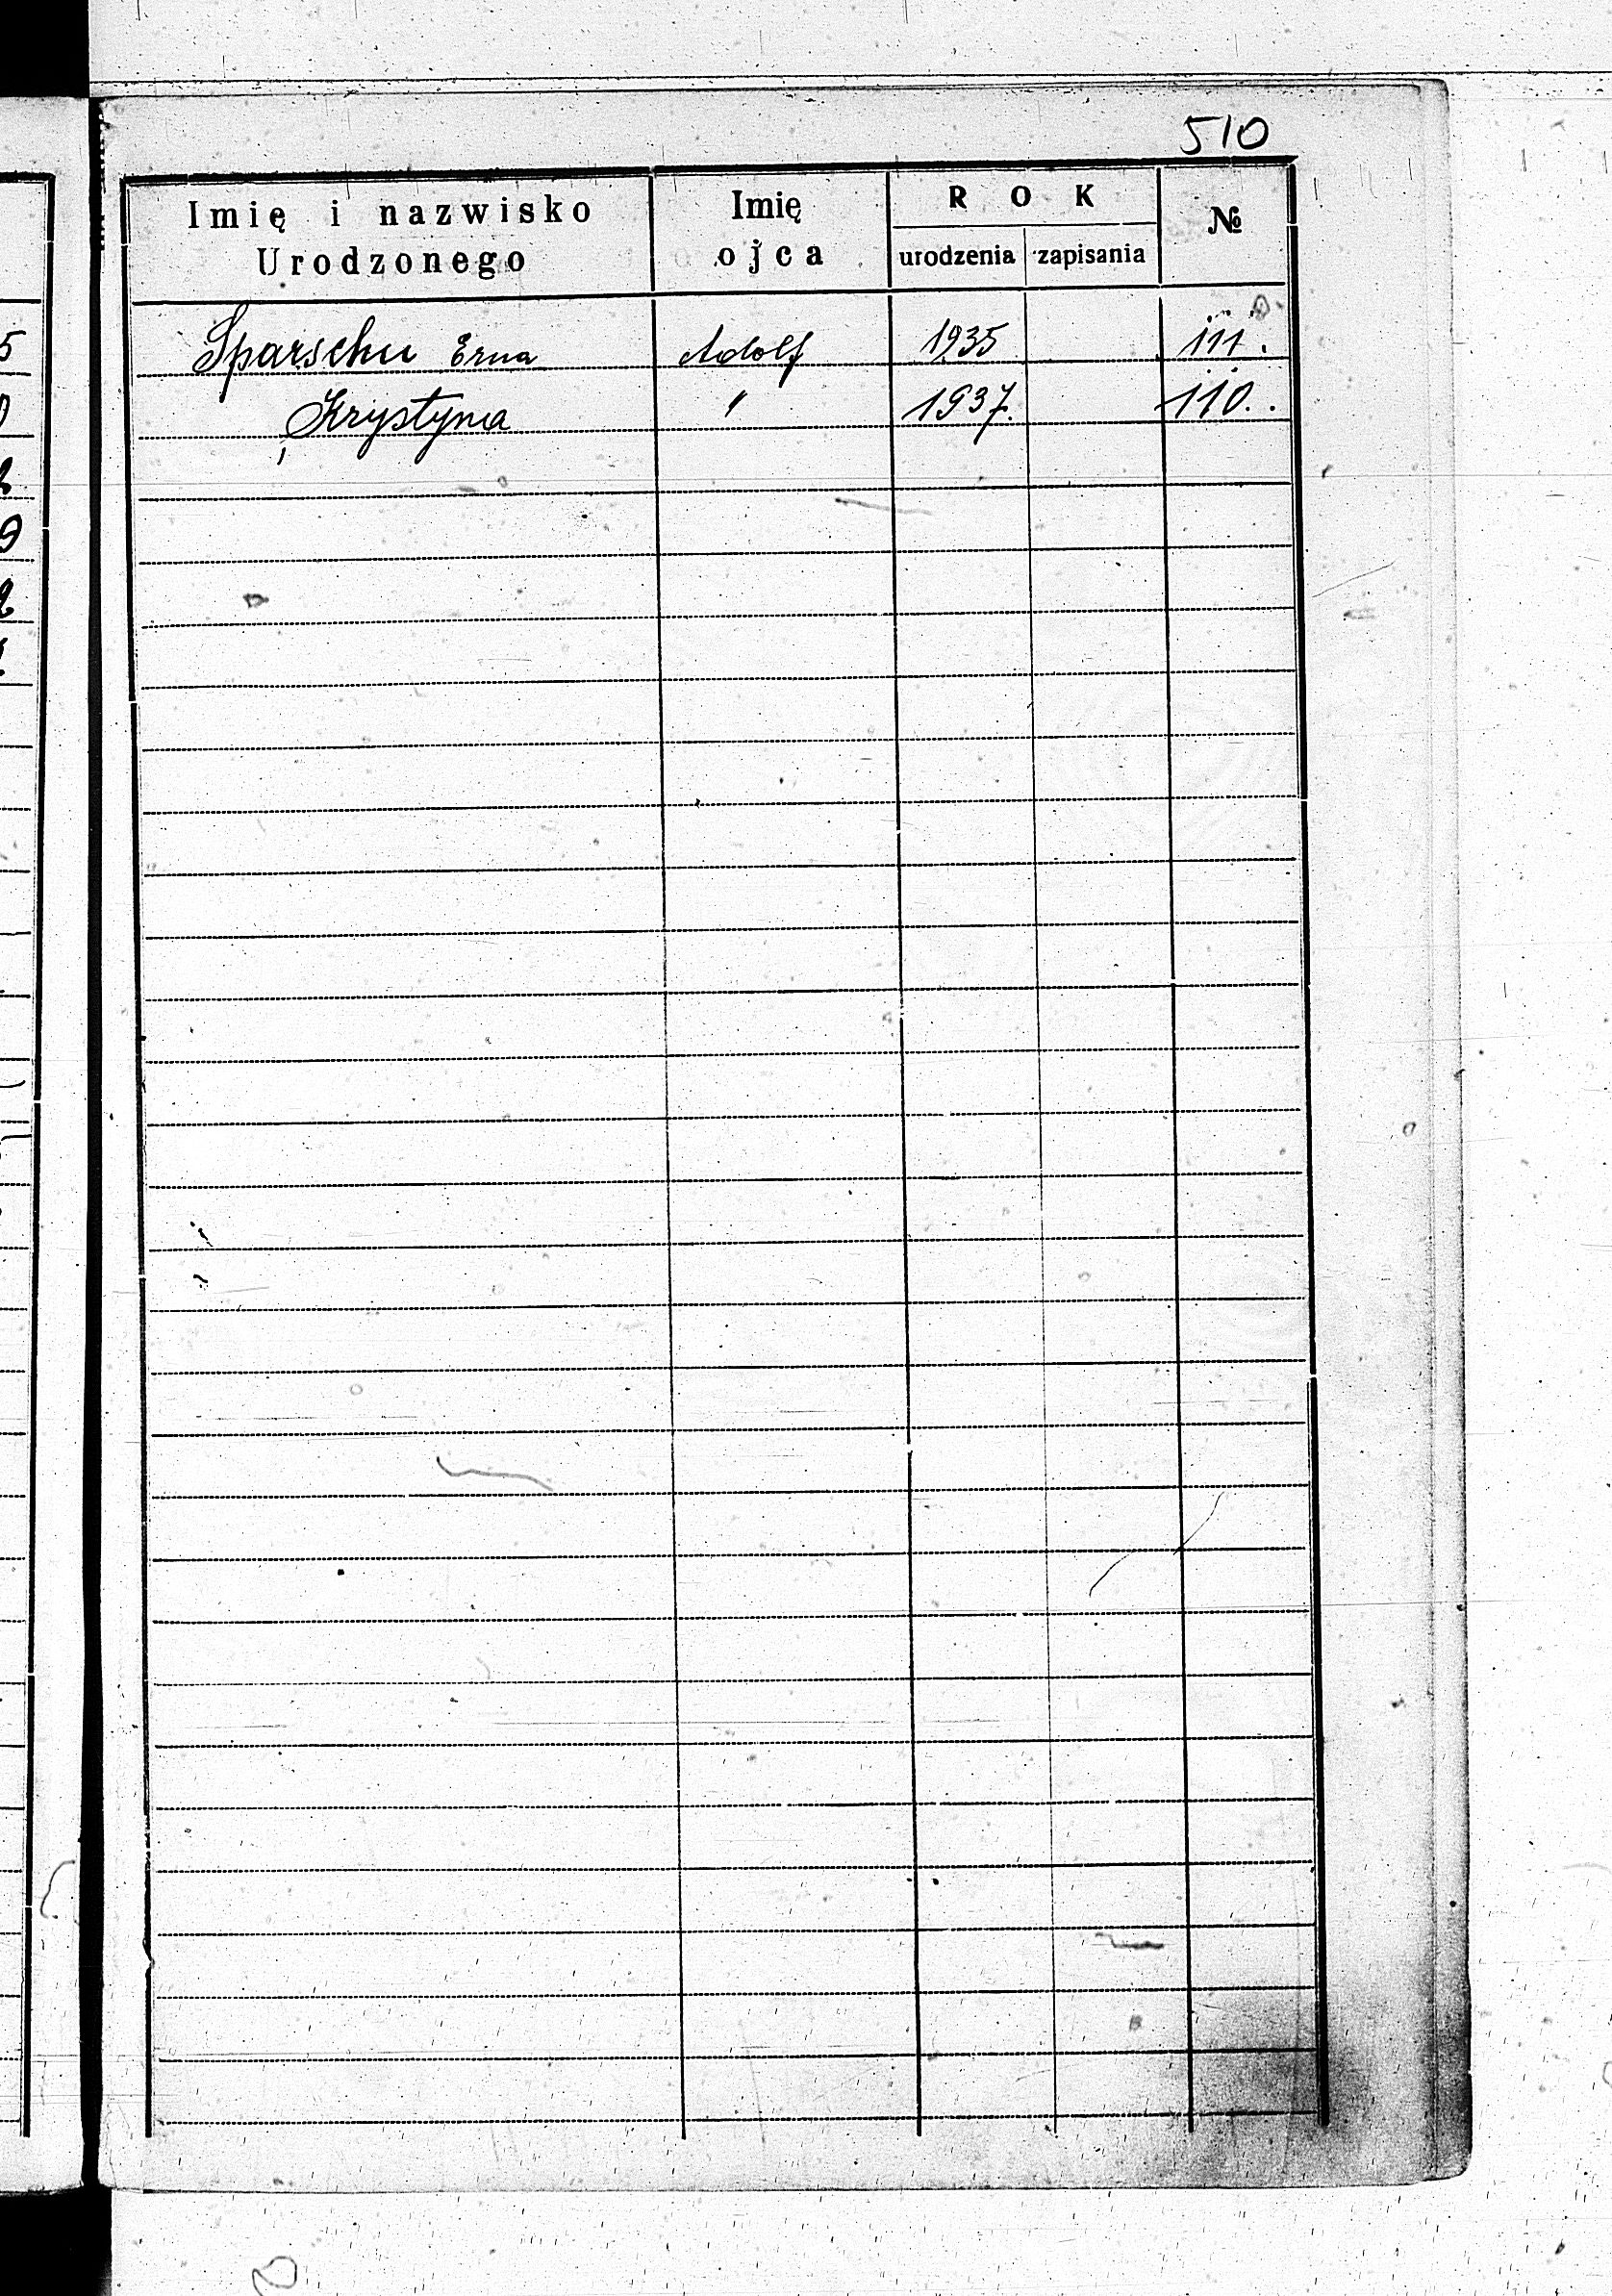 510
Imię i nazwisko Urodzonego Imię ojca ROK urodzenia zapisania №
Sparschu Erna Adolf 1935 111.
" Krystyna " 1937. 110.
5
0
2
9
2